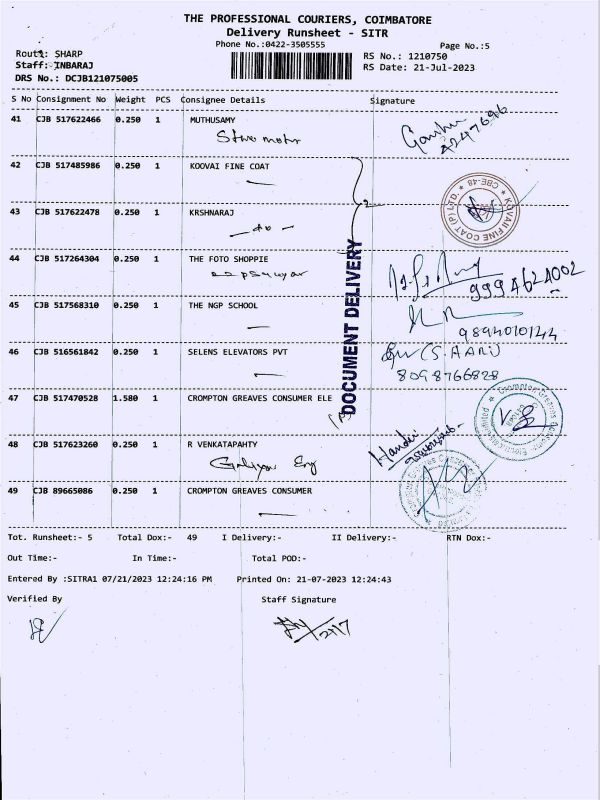 THE PROFESSIONAL COURIERS, COIMBATORE
Delivery Runsheet - SITR
Phone No.:0422-3505555
Page No.:5
Route: SHARP
RS No.: 1210750
Staff: INBARAJ
RS Date: 21-Jul-2023
DRS No.: DCJB121075005
S No Consignment No Weight PCS Consignee Details Signature
41 CJB 517622466 0.250 1 MUTHUSAMY
42 CJB 517485986 0.250 1 KOOVAI FINE COAT
KOVAI FINE COAT (P) LTD. * CBE-48 *
43 CJB 517622478 0.250 1 KRSHNARAJ
44 CJB 517264304 0.250 1 THE FOTO SHOPPIE
9994624002
45 CJB 517568310 0.250 1 THE NGP SCHOOL
9894010144
46 CJB 516561842 0.250 1 SELENS ELEVATORS PVT
8098766828
DOCUMENT DELIVERY
47 CJB 517470528 1.580 1 CROMPTON GREAVES CONSUMER ELE
48 CJB 517623260 0.250 1 R VENKATAPAHTY
49 CJB 89665086 0.250 1 CROMPTON GREAVES CONSUMER
Tot. Runsheet:- 5 Total Dox:- 49 I Delivery:- II Delivery:- RTN Dox:-
Out Time:- In Time:- Total POD:-
Entered By :SITRA1 07/21/2023 12:24:16 PM Printed On: 21-07-2023 12:24:43
Verified By Staff Signature